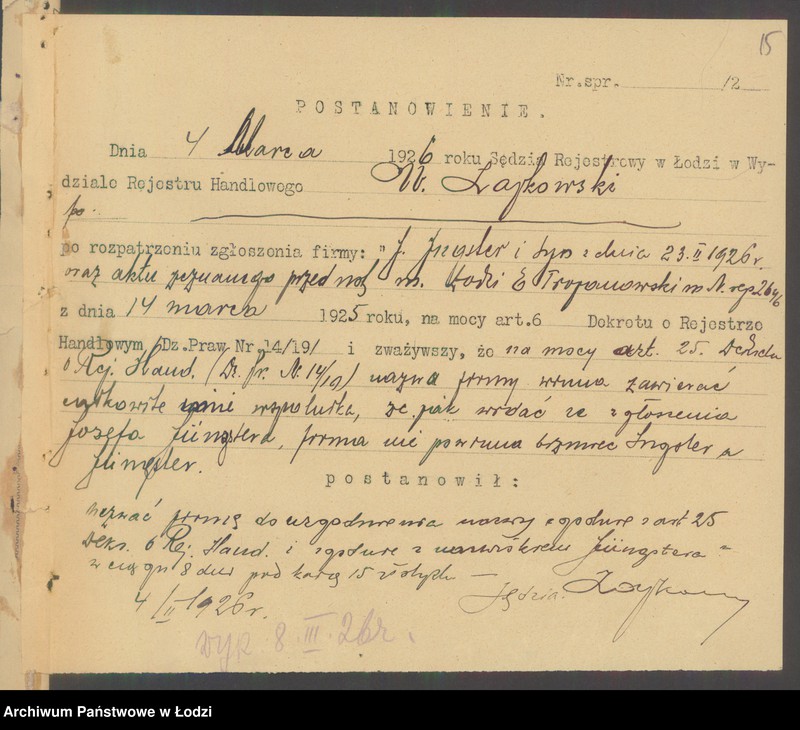 15
Nr.spr. /2
POSTANOWIENIE.
Dnia 4 Marca 1926 roku Sędzia Rejestrowy w Łodzi w Wy-
dziale Rejestru Handlowego W. Zajkowski
po rozpatrzeniu zgłoszenia firmy: "J. Jngster i Syn z dnia 23.II 1926 r.
oraz aktu zeznanego przed not. m. Łodzi E Trojanowskim N. rep. 2646
z dnia 14 marca 1925 roku, na mocy art.6 Dekretu o Rejestrze
Handlowym /Dz.Praw Nr 14/19/ i zważywszy, że na mocy art. 25. Dekretu
o Rej. Hand. (Dz. Pr. N. 14/19) nazwa firmy winna zawierać
całkowite imię wspólnika, że jak widać ze zgłoszenia
Józefa Jüngstera, firma nie powinna brzmieć Jngster a
Jüngster.
postanowił:
wezwać firmę do uzgodnienia nazwy zgodnie z art 25
Dekr. o Rej. Hand. i zgodnie z nazwiskiem Jüngstera"
w ciągu 8 dni pod karą 15 złotych —
4/II 1926 r. Sędzia: Zajkowski
wyp 8.III.26r.
Archiwum Państwowe w Łodzi